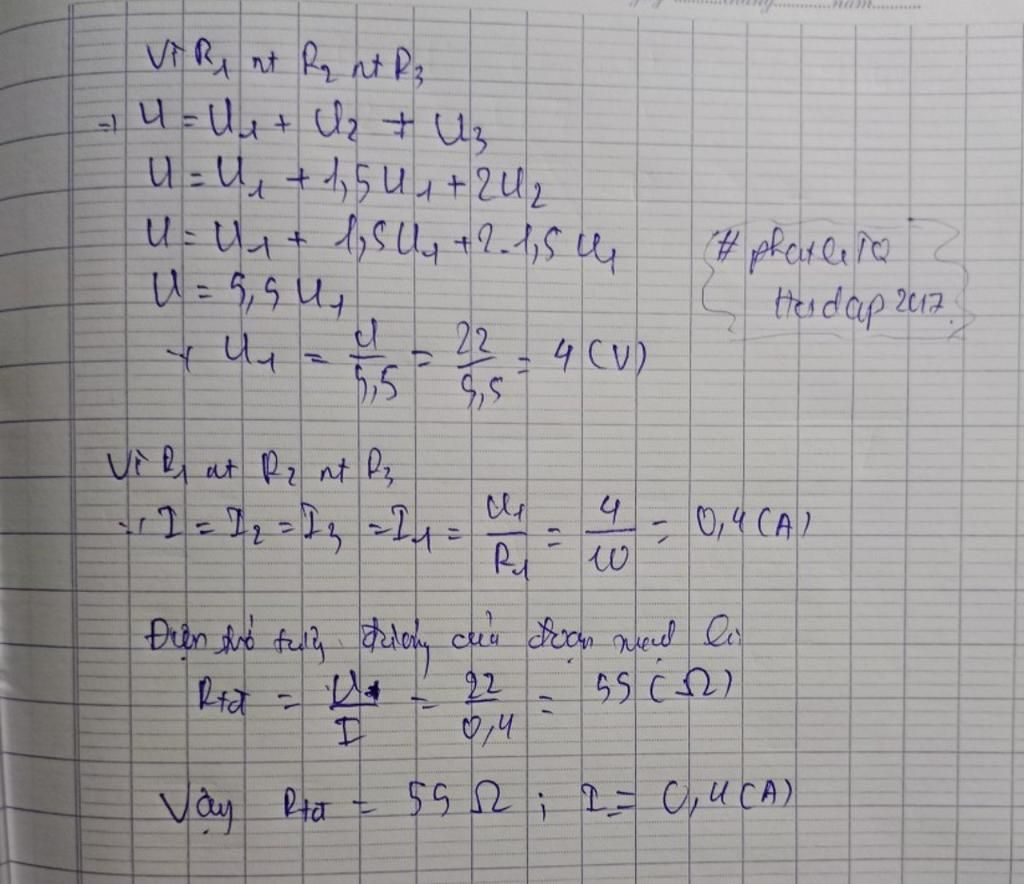 Vì R1 nt R2 nt R3
=> U = U1 + U2 + U3
U = U1 + 1,5U1 + 2U2
U = U1 + 1,5U1 + 2.1,5U1
U = 5,5U1
U1 = U/5,5 = 22/5,5 = 4 (V)
Vì R1 nt R2 nt R3
I = I2 = I3 = I1 = U1/R1 = 4/10 = 0,4 (A)
Điện trở tương đương của đoạn mạch là:
Rtđ = U/I = 22/0,4 = 55 (Ω)
Vậy Rtđ = 55 Ω ; I = 0,4 (A)
Hoidap 247